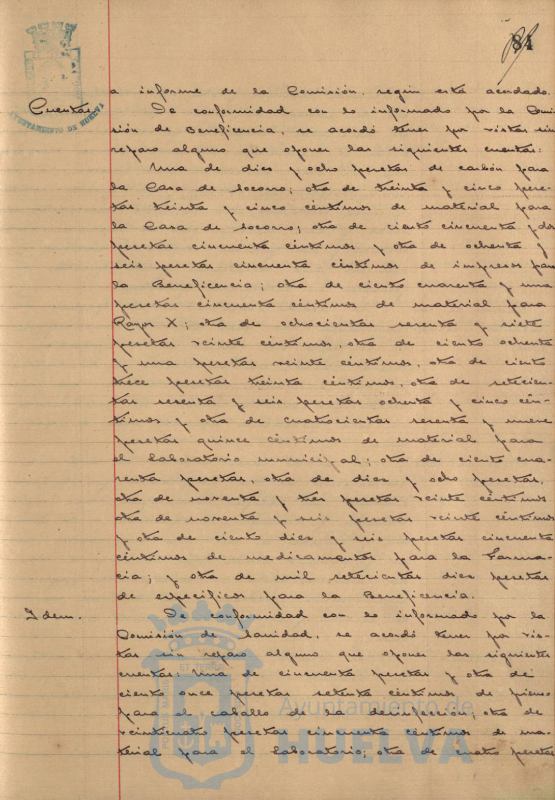 84
AYUNTAMIENTO DE HUELVA
a informe de la Comisión, según está acordado.
Cuentas. De conformidad con lo informado por la Comi
sión de Beneficencia, se acordó tener por vistas sin
reparo alguno que oponer las siguientes cuentas:
Una de diez y ocho pesetas de carbón para
la Casa de Socorro; otra de treinta y cinco pese-
tas treinta y cinco céntimos de material para
la Casa de Socorro; otra de ciento cincuenta y dos
pesetas cincuenta céntimos y otra de ochenta y
seis pesetas cincuenta céntimos de impresos para
la Beneficencia; otra de ciento cuarenta y una
pesetas cincuenta céntimos de material para
Rayos X; otra de ochocientas sesenta y siete
pesetas veinte céntimos, otra de ciento ochenta
y una pesetas veinte céntimos, otra de ciento
trece pesetas treinta céntimos, otra de setecien-
tas sesenta y seis pesetas ochenta y cinco cén-
timos y otra de cuatrocientas sesenta y nueve
pesetas quince céntimos de material para
el laboratorio municipal; otra de ciento cua-
renta pesetas, otra de diez y ocho pesetas,
otra de noventa y tres pesetas veinte céntimos
otra de noventa y seis pesetas veinte céntimos
y otra de ciento diez y seis pesetas cincuenta
céntimos de medicamentos para la Farma-
cia; y otra de mil setecientas diez pesetas
de específicos para la Beneficencia.
Idem. De conformidad con lo informado por la
Comisión de Sanidad, se acordó tener por vis-
tas sin reparo alguno que oponer las siguientes
cuentas: Una de cincuenta pesetas y otra de
ciento once pesetas setenta céntimos de pienso
para el caballo de la desinfección; otra de
veinticuatro pesetas cincuenta céntimos de ma-
terial para el laboratorio; otra de cuatro pesetas
Ayuntamiento de
HUELVA